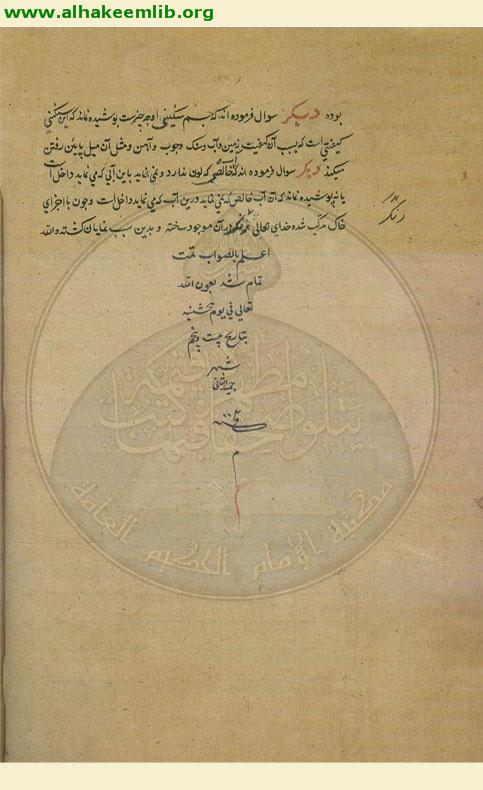 www.alhakeemlib.org
بوده دیگر سوال فرموده اند که جسم سنگینی او چه چیزست پوشیده نماند که این سنگینی
کیفیتی است که بسبب آن کیفیت زمین و آب و سنگ و چوب و آهن و مثل آن میل پایین رفتن
میکند دیگر سوال فرموده اند که آب خالص که لون ندارد و نمی نماید با این آبی که می نماید داخل است
یا نه پوشیده نماند که آن آب خالص که نمی نماید درین آب که می نماید داخل است و چون با اجزای
خاک مرکب شده خدای تعالی در آن موجود ساخته و بدین سبب نمایان گشته والله
رنگ
اعلم بالصواب تمت
تمام شد بعون الله
تعالی فی یوم پنجشنبه
بتاریخ بیست پنجم
شهر
جمید الثانی
م
مكتبة الإمام الحكيم العامة